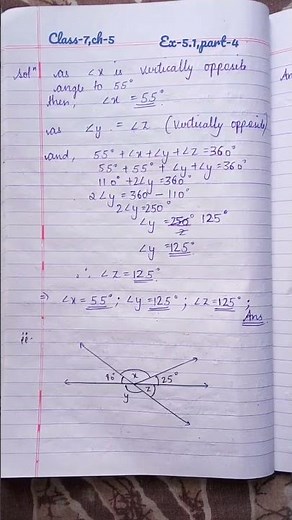 Class-7, ch-5 Ex-5.1, part-4
Solⁿ as ∠x is vertically opposite
angle to 55°
then, ∠x = 55°
as ∠y = ∠z (vertically opposite)
and, 55° + ∠x + ∠y + ∠z = 360°
55° + 55° + ∠y + ∠y = 360°
110° + 2∠y = 360°
2∠y = 360° - 110°
2∠y = 250°
∠y = 250°/2 125°
∠y = 125°
∴ ∠z = 125°
⇒ ∠x = 55° ; ∠y = 125° ; ∠z = 125° ;
Ans
ii.
x
25°
y
z
An